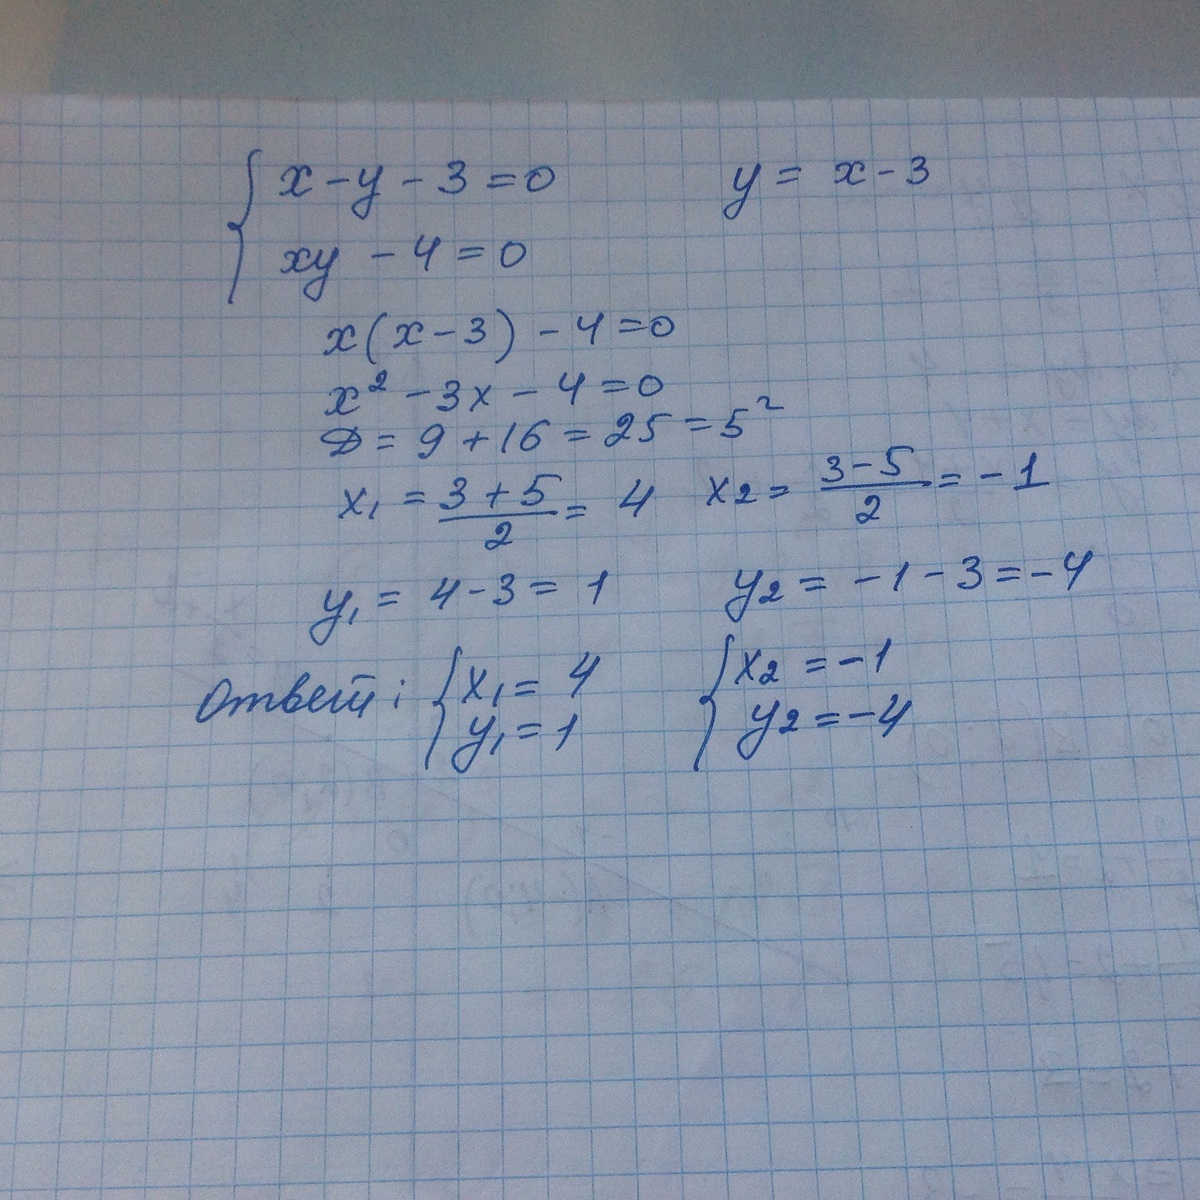 { x - y - 3 = 0     y = x - 3
{ xy - 4 = 0
x(x - 3) - 4 = 0
x² - 3x - 4 = 0
D = 9 + 16 = 25 = 5²
x₁ = (3 + 5)/2 = 4   x₂ = (3 - 5)/2 = -1
y₁ = 4 - 3 = 1   y₂ = -1 - 3 = -4
Ответ: { x₁ = 4   { x₂ = -1
{ y₁ = 1   { y₂ = -4